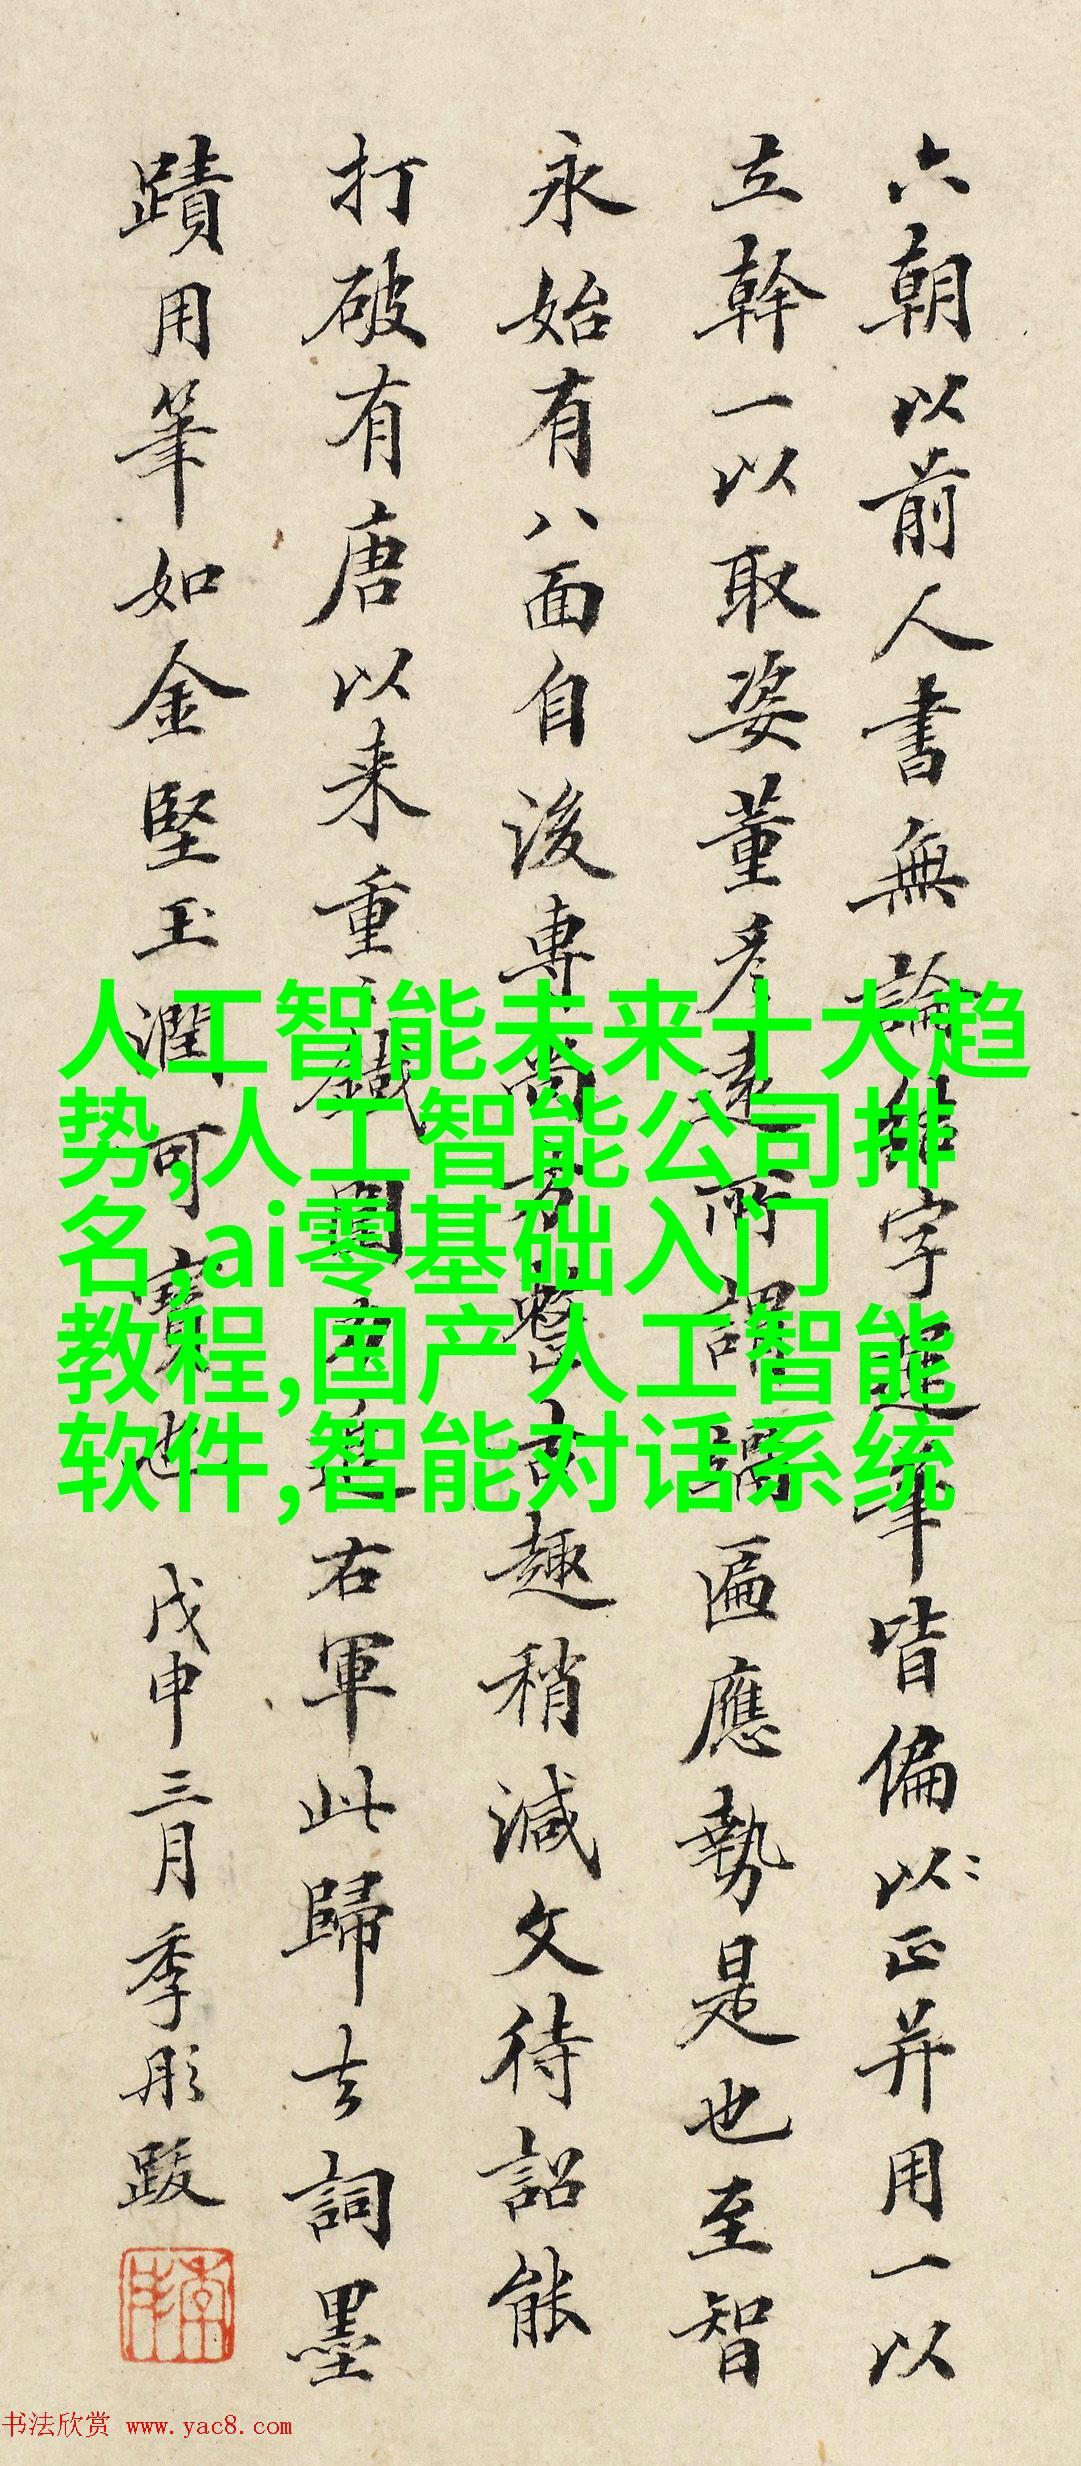 六朝以前人書無論結字運筆皆偏以正并用一以
立幹一以取姿董彦遠所謂匾應勢是也至智
永始有八面自後專尚方整古趣稍減文待詔能
打破有唐以来重鐵圍右軍此歸去詞墨
蹟用筆如金堅玉潤可寶也 戊申三月季彤跋
人工智能未来十大趋
势,人工智能公司排
名,ai零基础入门
教程,国产人工智能
软件,智能对话系统
书法欣赏 www.yac8.com